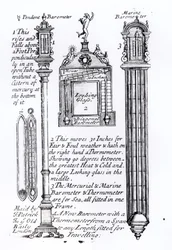 Pendent Barometer
Marine Barometer
1 This
rises and
Falls above
a Foot Per-
pendicularly
in an
open Tube
without a
Cistern of
mercury at
the bottom
of it
Looking
Glass
2
3
2 This moves 30 Inches for
Fair & Foul weather & hath on
the right hand a Thermometer
Showing 90 degrees between
the greatest Heat & Cold and
a large Looking glass in the
middle
3 The Mercurial & Marine
Barometer & Thermometer
are for Sea, all fitted in one
Frame
4 A New Barometer with a
Thermometer from a Span
to any Length fitted for
Travelling
Made by